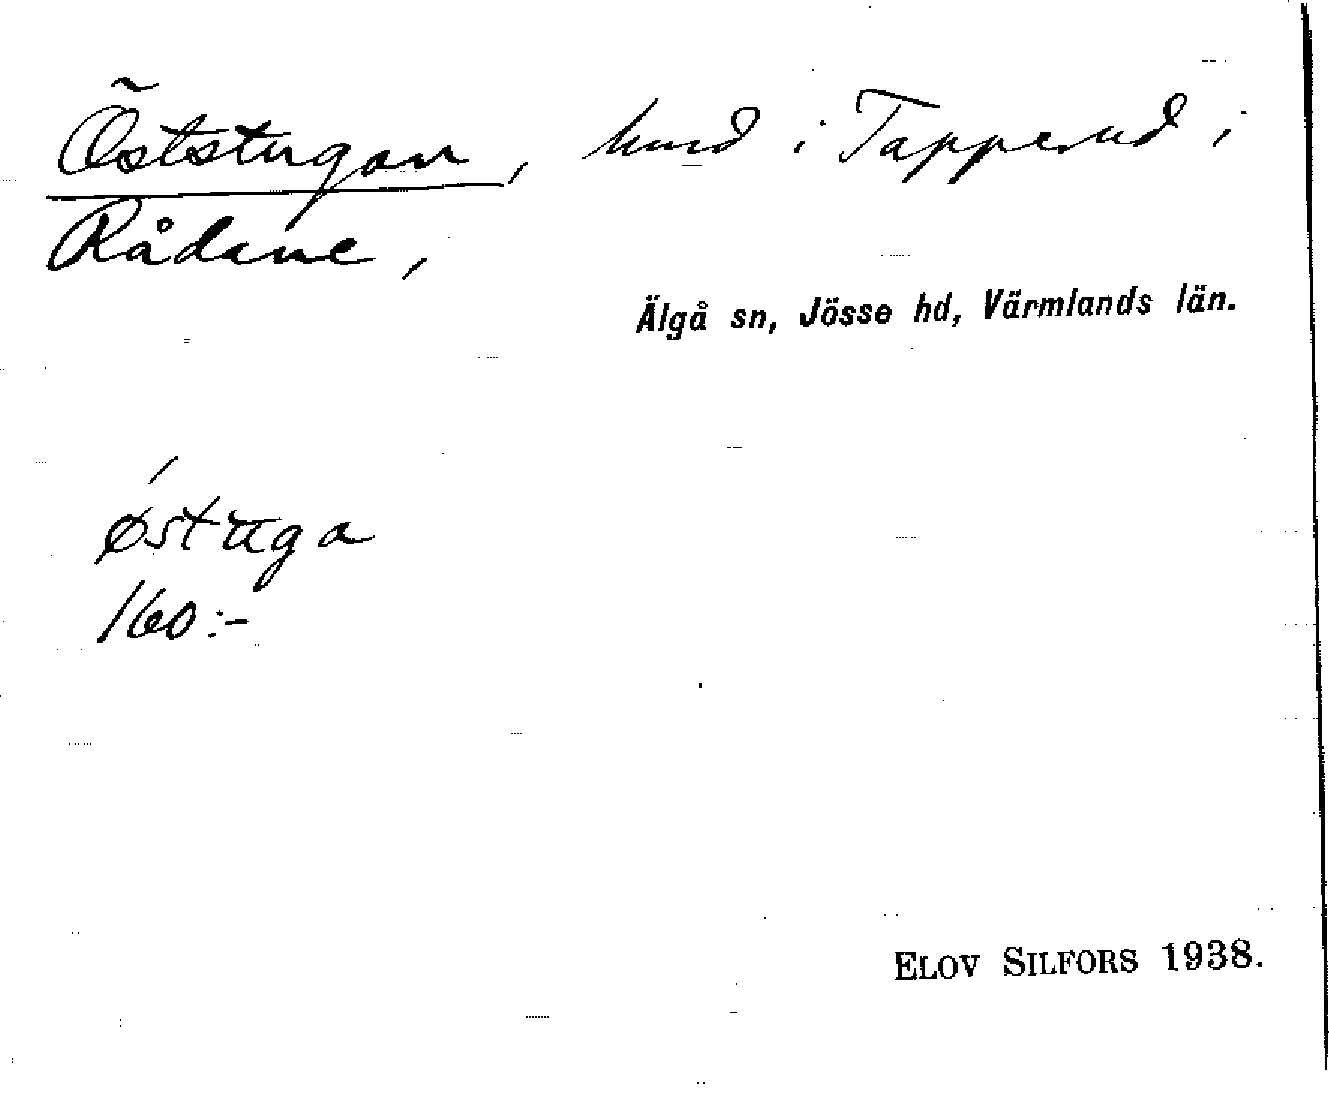 Öststugan, hmd i Tapperud i
Rådane,
Älgå sn, Jösse hd, Värmlands län.
østuga
160:-
ELOV SILFORS 1938.